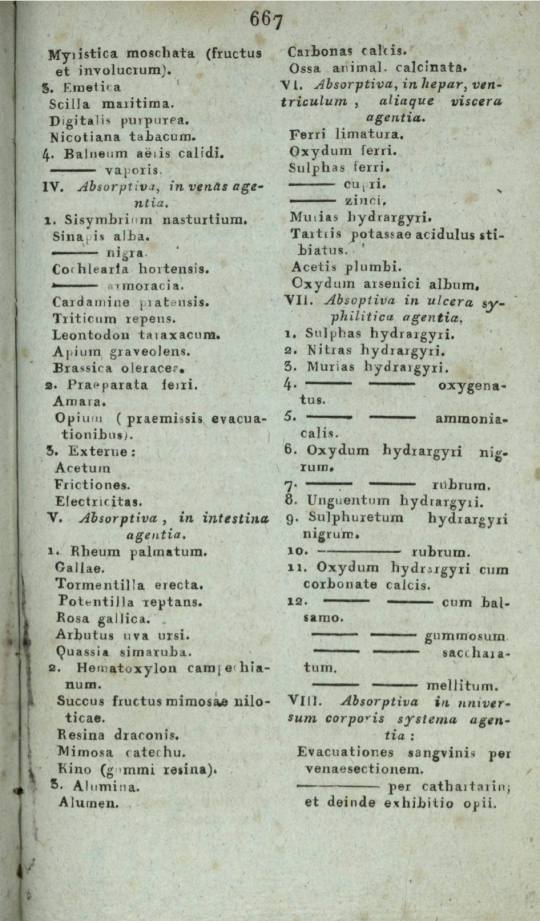 667
Myristica moschata (fructus
et involucrum).
3. Emetica
Scilla maritima.
Digitalis purpurea.
Nicotiana tabacum.
4. Balneum aëris calidi.
——— vaporis.
IV. Absorptiva, in venas age-
ntia.
1. Sisymbrium nasturtium.
Sinapis alba.
——— nigra.
Cochlearia hortensis.
——— armoracia.
Cardamine pratensis.
Triticum repens.
Leontodon taraxacum.
Apium graveolens.
Brassica oleracea.
2. Praeparata ferri.
Amara.
Opium ( praemissis evacua-
tionibus).
3. Externe :
Acetum
Frictiones.
Electricitas.
V. Absorptiva , in intestina
agentia.
1. Rheum palmatum.
Gallae.
Tormentilla erecta.
Potentilla reptans.
Rosa gallica.
Arbutus uva ursi.
Quassia simaruba.
2. Hematoxylon campechia-
num.
Succus fructus mimosae nilo-
ticae.
Resina draconis.
Mimosa catechu.
Kino (gummi resina).
3. Alumina.
Alumen.
Carbonas calcis.
Ossa animal. calcinata.
VI. Absorptiva, in hepar, ven-
triculum , aliaque viscera
agentia.
Ferri limatura.
Oxydum ferri.
Sulphas ferri.
——— cupri.
——— zinci.
Murias hydrargyri.
Tartris potassae acidulus sti-
biatus.
Acetis plumbi.
Oxydum arsenici album.
VII. Absoptiva in ulcera sy-
philitica agentia.
1. Sulphas hydrargyri.
2. Nitras hydrargyri.
3. Murias hydrargyri.
4. ——— ——— oxygena-
tus.
5. ——— ——— ammonia-
calis.
6. Oxydum hydrargyri nig-
rum.
7. ——— ——— rubrum.
8. Unguentum hydrargyri.
9. Sulphuretum hydrargyri
nigrum.
10. ——————— rubrum.
11. Oxydum hydrargyri cum
corbonate calcis.
12. ——— ——— cum bal-
samo.
——— ——— gummosum
——— ——— sacchara-
tum.
——— ——— mellitum.
VIII. Absorptiva in nniver-
sum corporis systema agen-
tia :
Evacuationes sangvinis per
venaesectionem.
——————— per cathartarin;
et deinde exhibitio opii.